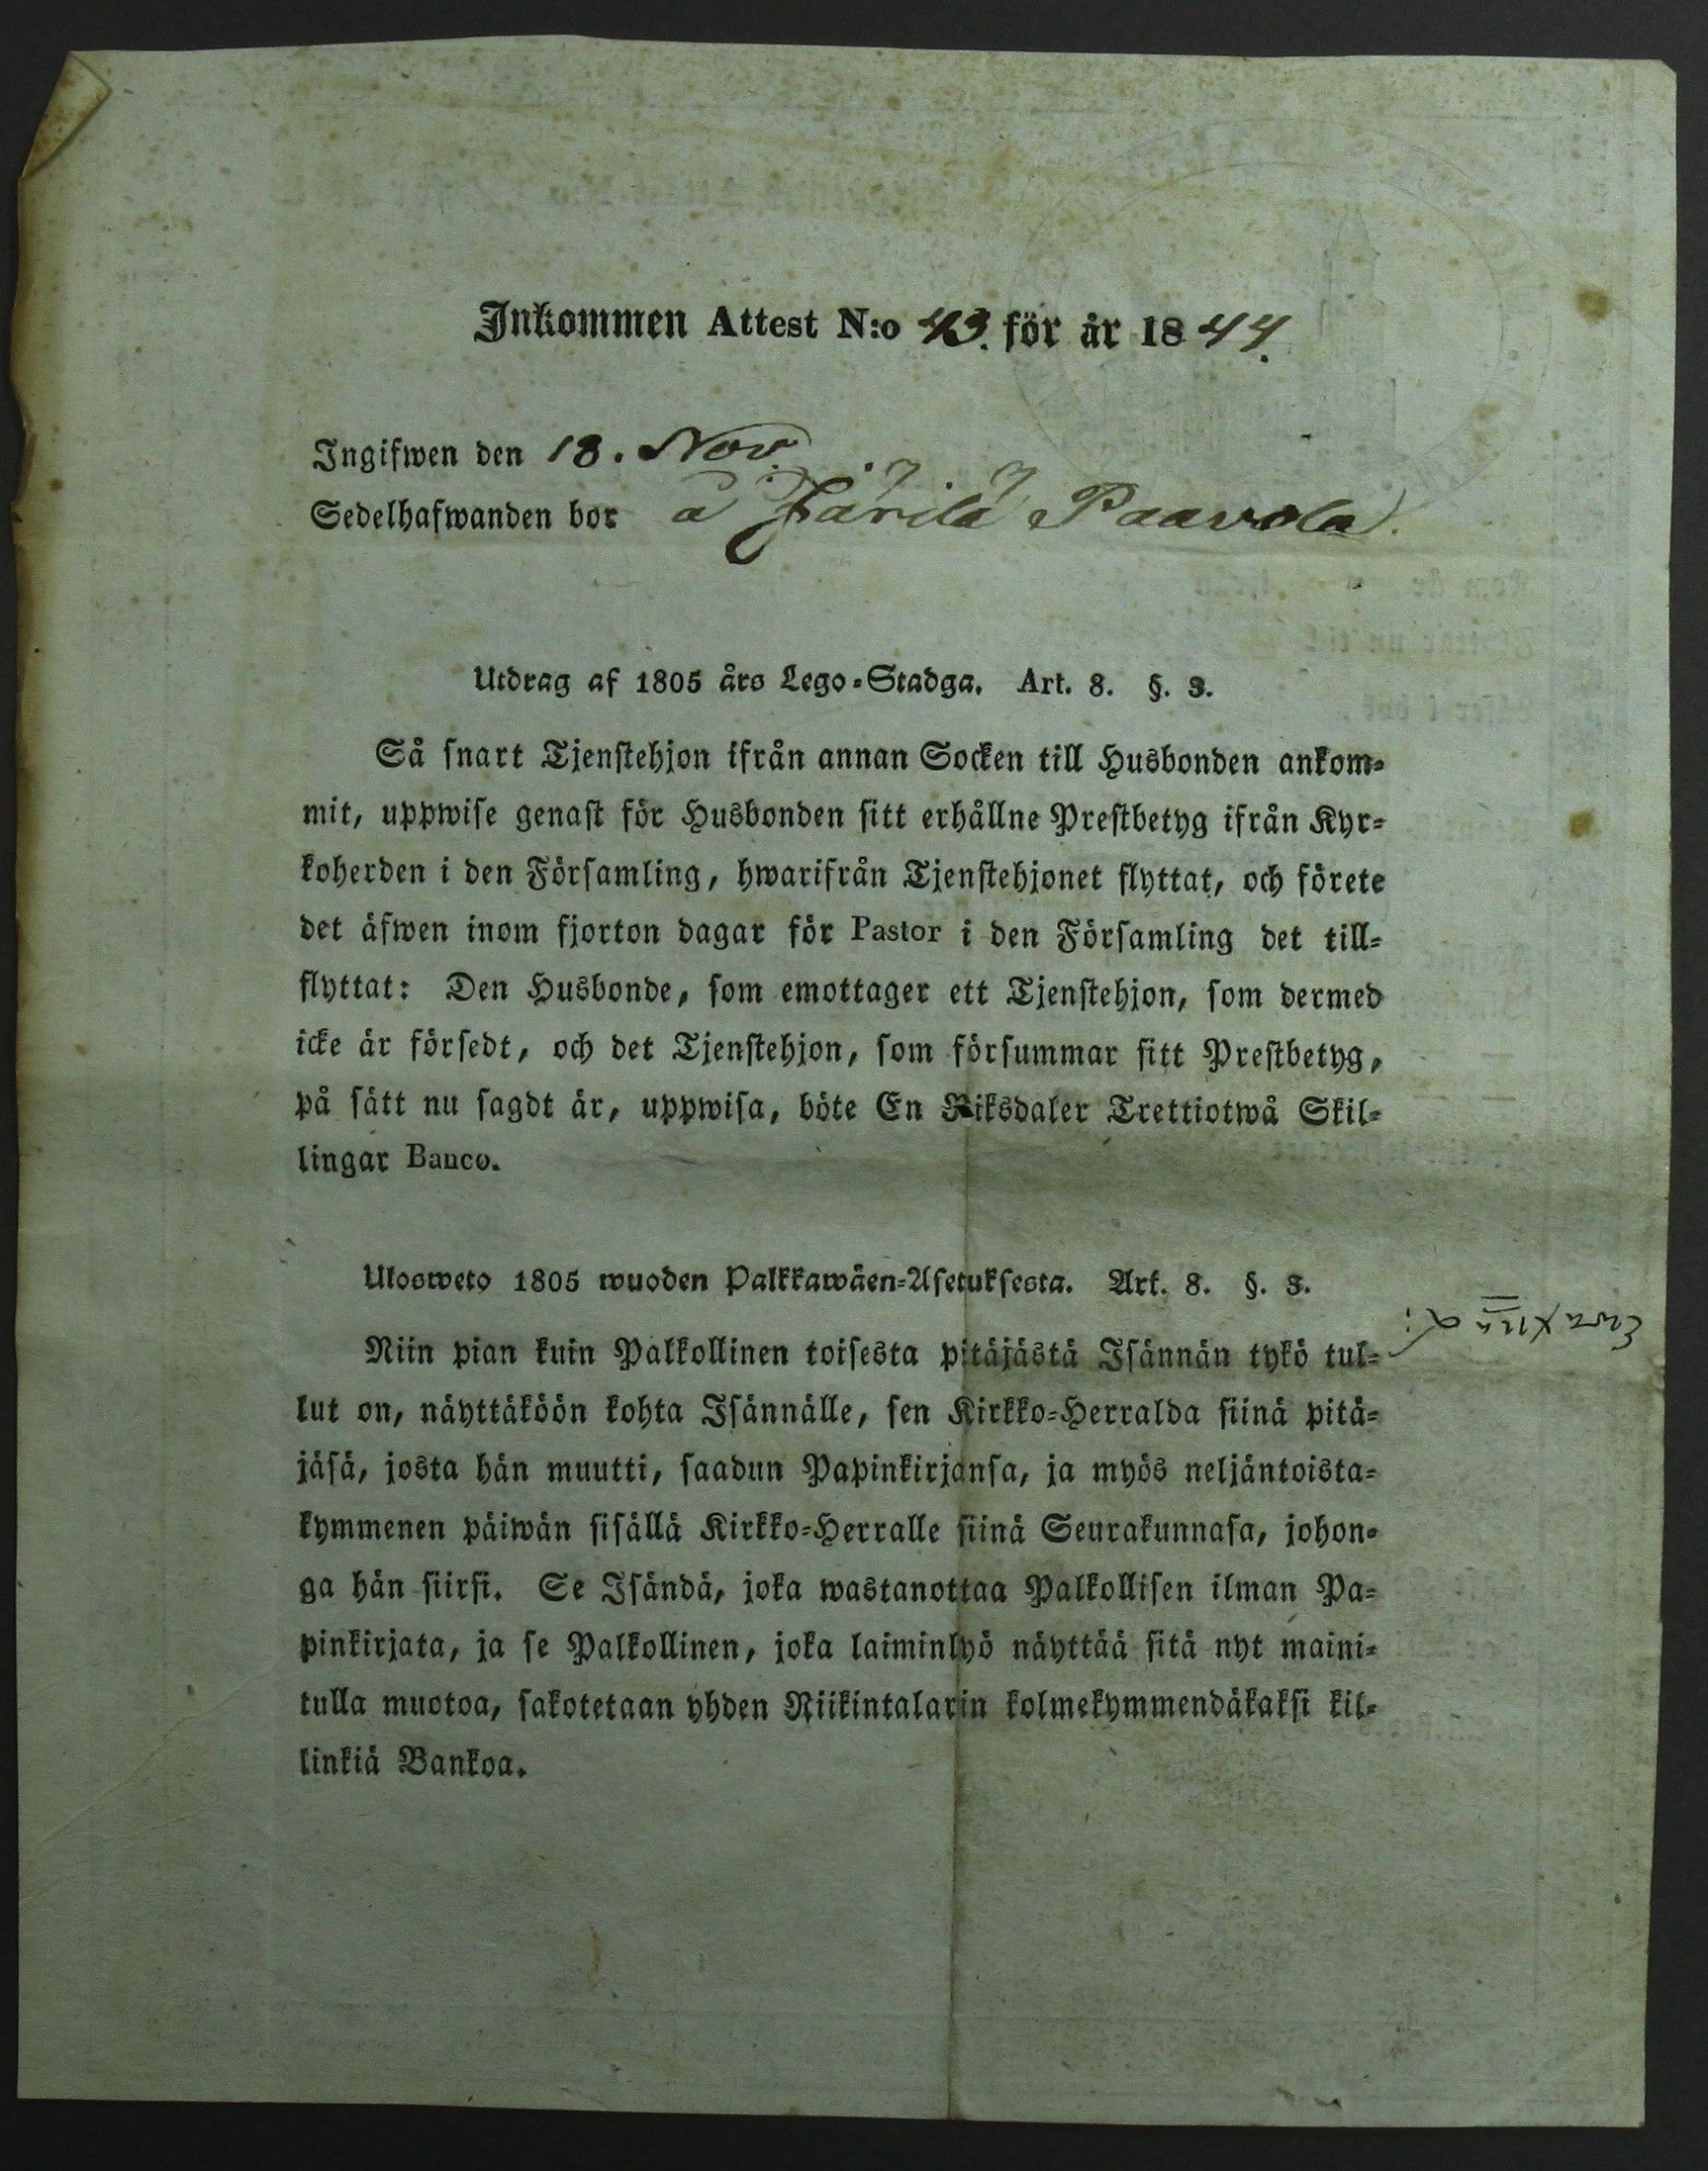 Inkommen Attest N:o 43. för år 1844.
Ingifwen den 18. Nov.
Sedelhafwanden bor å Järilä Paavola.
Utdrag af 1805 års Lego-Stadga. Art. 8. §. 3.
Så snart Tjenstehjon ifrån annan Socken till Husbonden ankom-
mit, uppwise genast för Husbonden sitt erhållne Prestbetyg ifrån Kyr-
koherden i den Församling, hwarifrån Tjenstehjonet flyttat, och förete
det äfwen inom fjorton dagar för Pastor i den Församling det till-
flyttat: Den Husbonde, som emottager ett Tjenstehjon, som dermed
icke är försedt, och det Tjenstehjon, som försummar sitt Prestbetyg,
på sätt nu sagdt är, uppwisa, böte En Riksdaler Trettiotwå Skil-
lingar Banco.
Ulosweto 1805 wuoden Palkkawäen-Asetuksesta. Art. 8. §. 3.
Niin pian kuin Palkollinen toisesta pitäjästä Isännän tykö tul-
lut on, näyttäköön kohta Isännälle, sen Kirkko-Herralda siinä pitä-
jäsä, josta hän muutti, saadun Papinkirjansa, ja myös neljäntoista-
kymmenen päiwän sisällä Kirkko-Herralle siinä Seurakunnasa, johon-
ga hän siirsi. Se Isändä, joka wastanottaa Palkollisen ilman Pa-
pinkirjata, ja se Palkollinen, joka laiminlyö näyttää sitä nyt maini-
tulla muotoa, sakotetaan yhden Riikintalarin kolmekymmendäkaksi kil-
linkiä Bankoa.